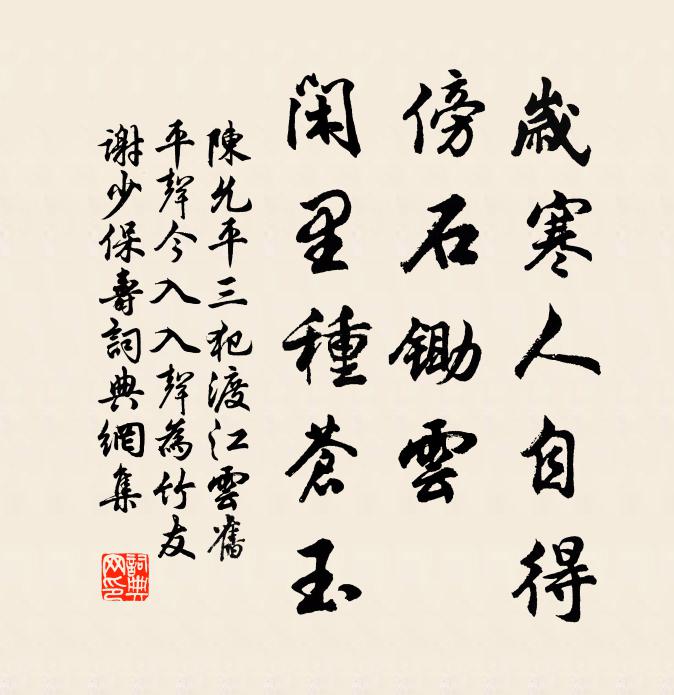 歲寒人自得
傍石鋤雲
閑里種蒼玉
陳允平三犯渡江雲舊
平聲今入入聲為竹友
謝少保壽詞典網集
詞典
网印